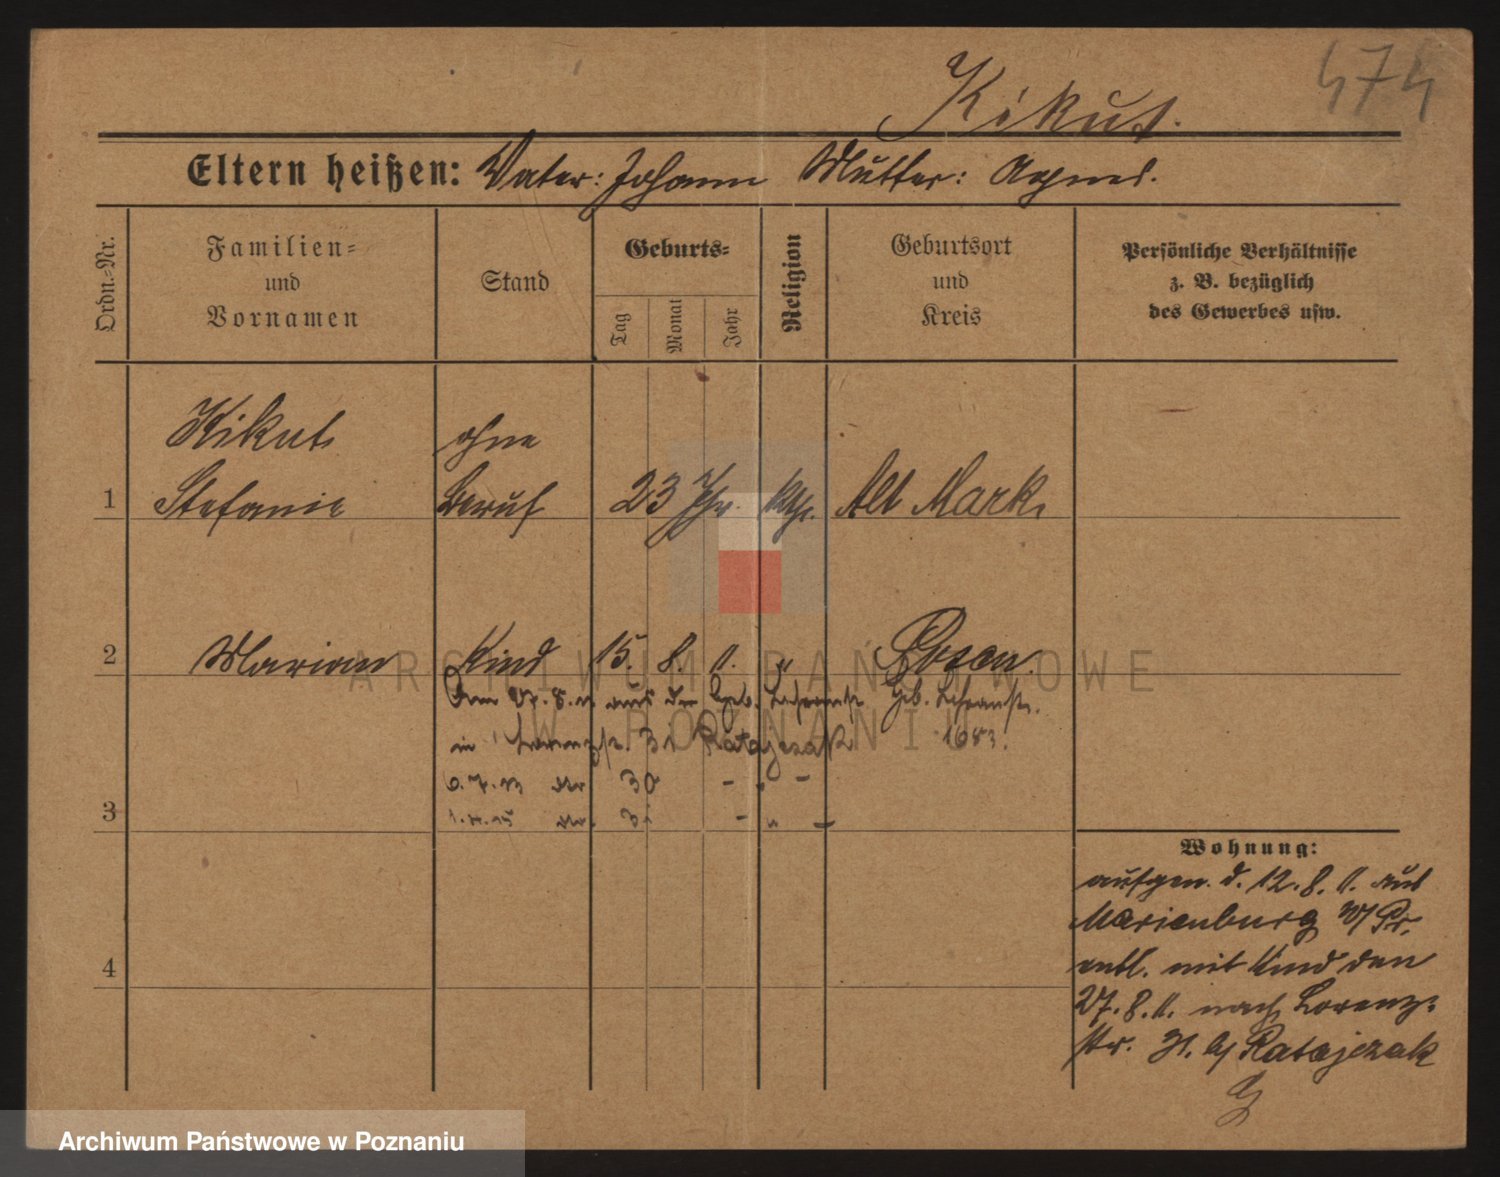 474
Kikut.
Eltern heißen: Vater: Johann Mutter: Agnes.
Ordn.=Nr.
Familien=
und
Vornamen
Stand
Geburts=
Tag
Monat
Jahr
Religion
Geburtsort
und
Kreis
Persönliche Verhältnisse
z. B. bezüglich
des Gewerbes usw.
Kikut ohne
1 Stefanie Beruf 23 Jhr. kth. Alt Mark.
2 Marian Kind 15. 8. 11. " Posen.
Am 27.8.11 aus der Geb.
in 31 Ratajczak
6.7.13 30 - " -
3 31 - " -
Wohnung:
aufgen. d. 12.8.11. aus
Marienburg W/Pr.
entl. mit Kind den
27.8.11. nach Lorenz=
str. 31. b/ Ratajczak
4
ARCHIWUM PAŃSTWOWE
W POZNANIU
Archiwum Państwowe w Poznaniu